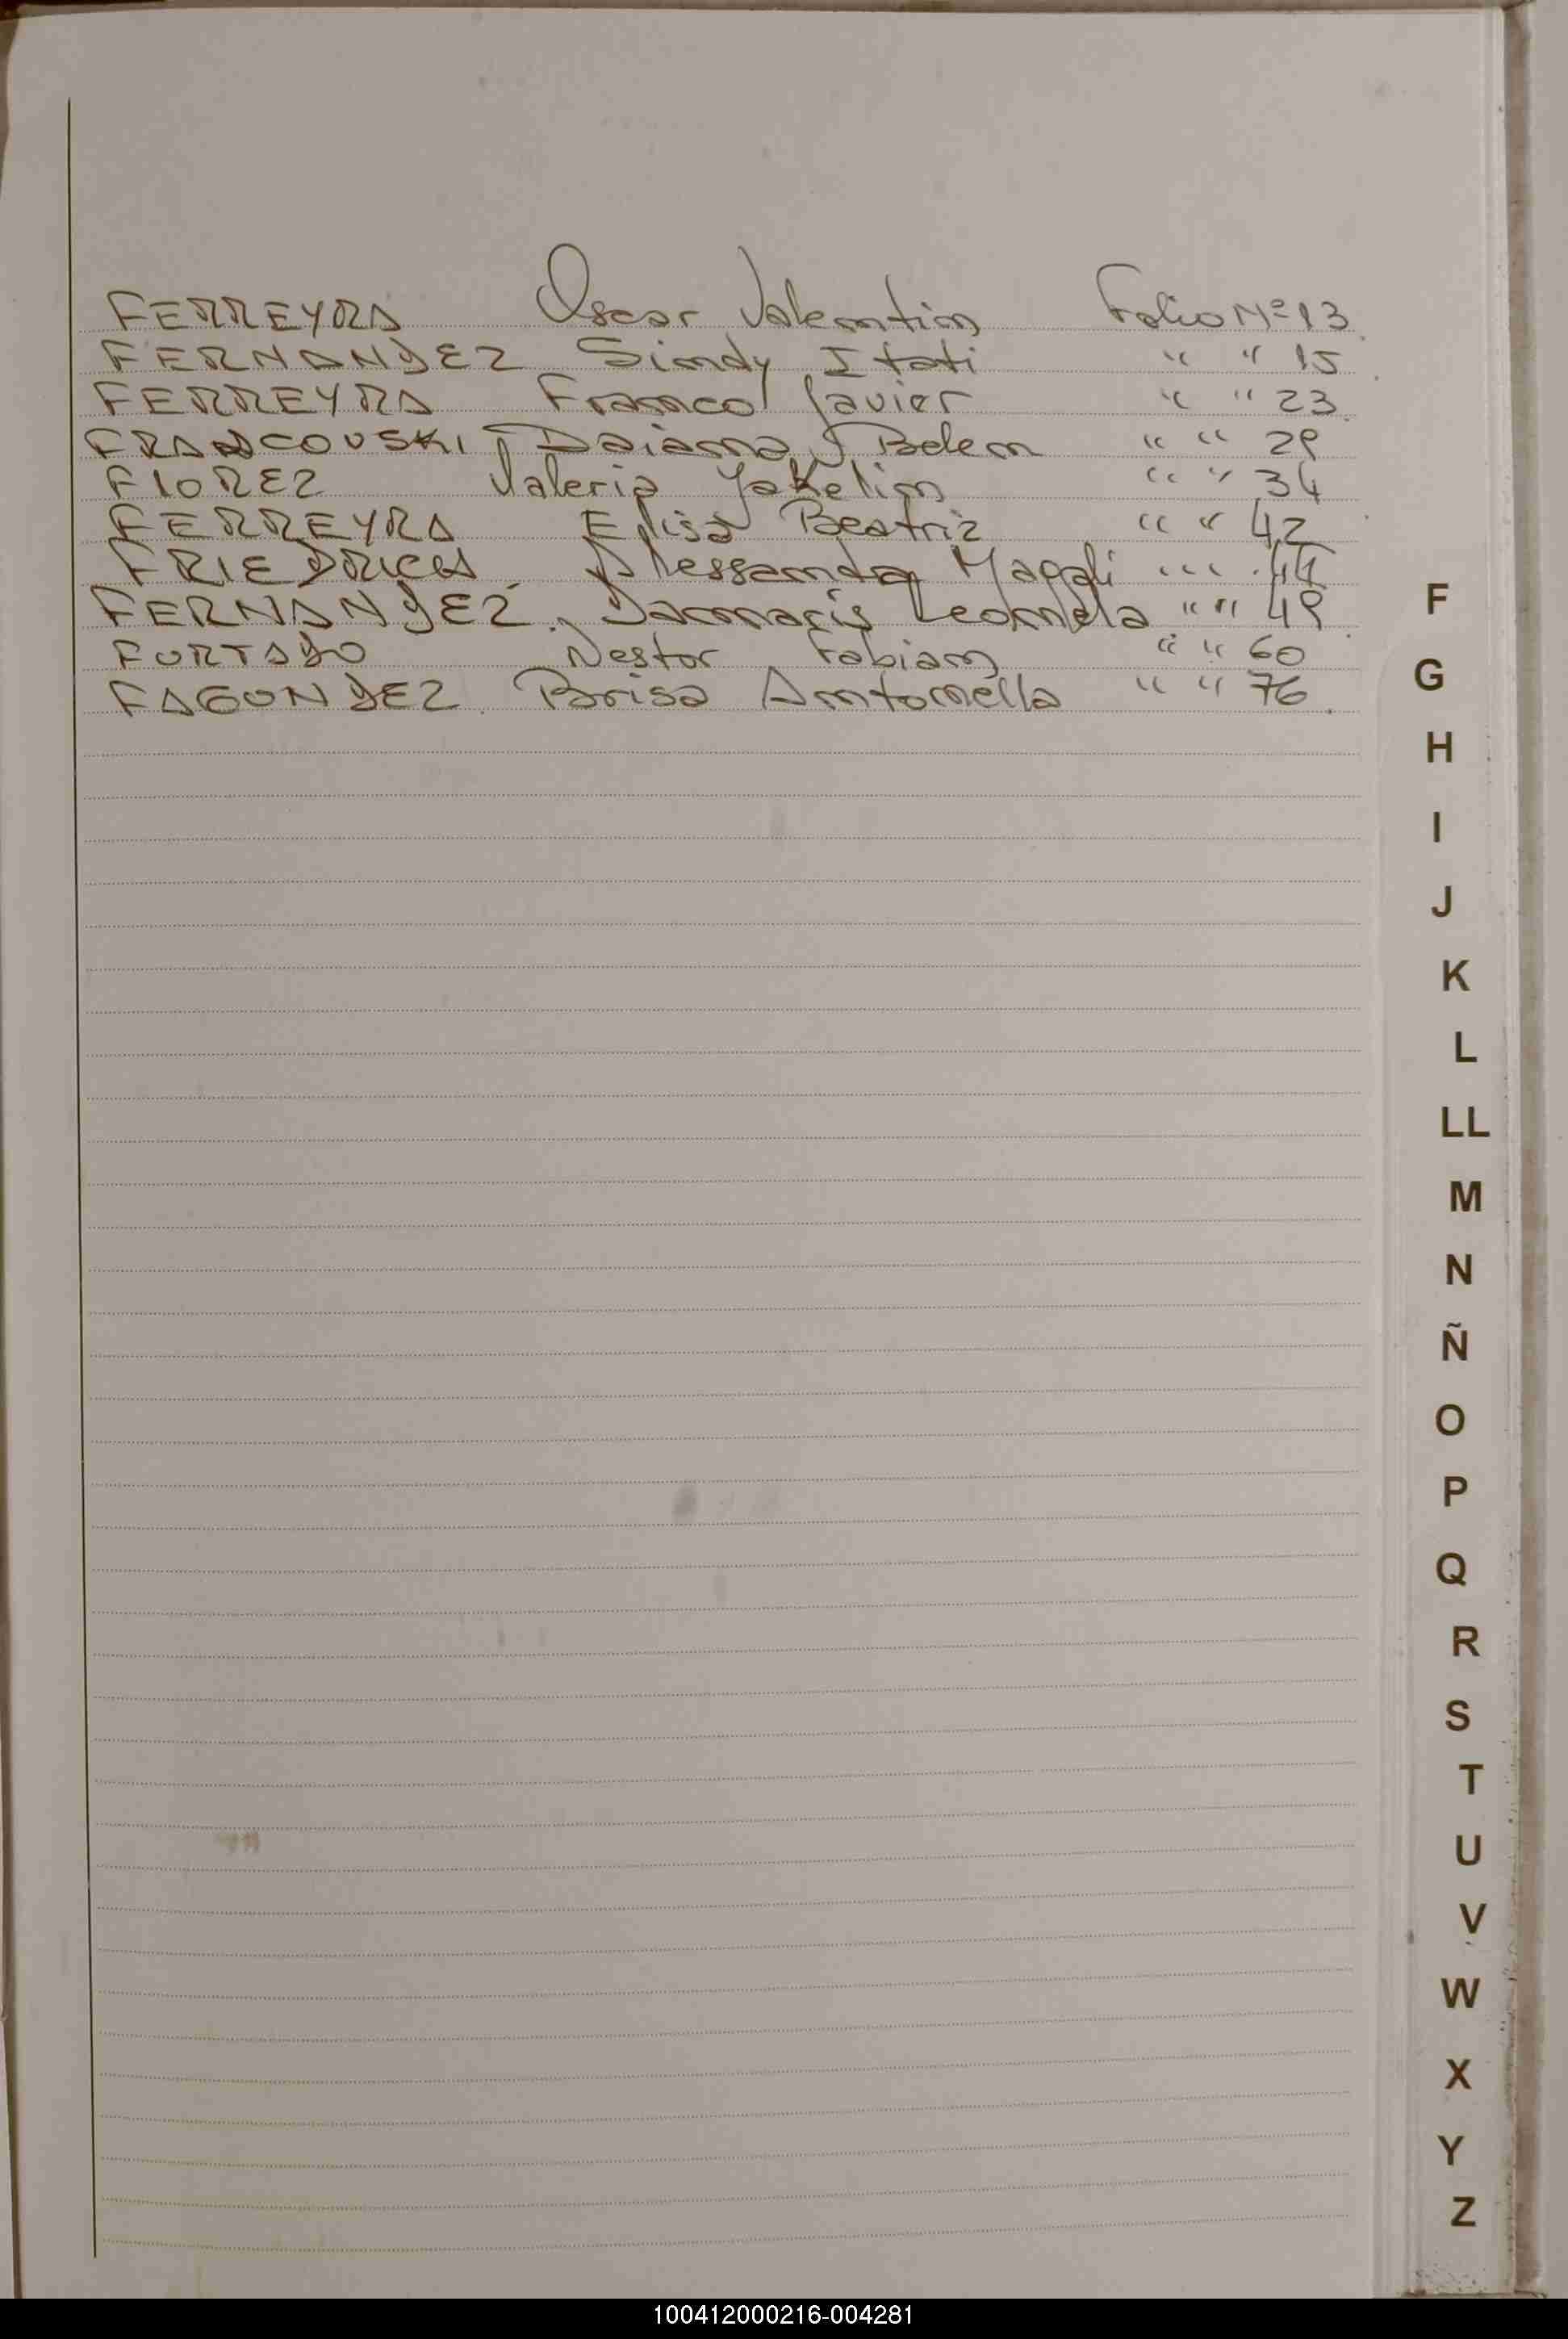 FERREYRA Oscar Valentin Folio Nº 13.
FERNANDEZ Sindy Itati " " 15
FERREYRA Franco Javier " " 23
FRANCOVSKI Daiana Belen " " 29
FLOREZ Valeria Yakelin " " 34
FERREYRA Elisa Beatriz " " 42
FRIEDRICH Alessandra Magali " " 44
FERNANDEZ Dammaris Leonela " " 49
FURTADO Nestor Fabian " " 60
FAGUNDEZ Brisa Antonella " " 76.
F
G
H
I
J
K
L
LL
M
N
Ñ
O
P
Q
R
S
T
U
V
W
X
Y
Z
100412000216-004281